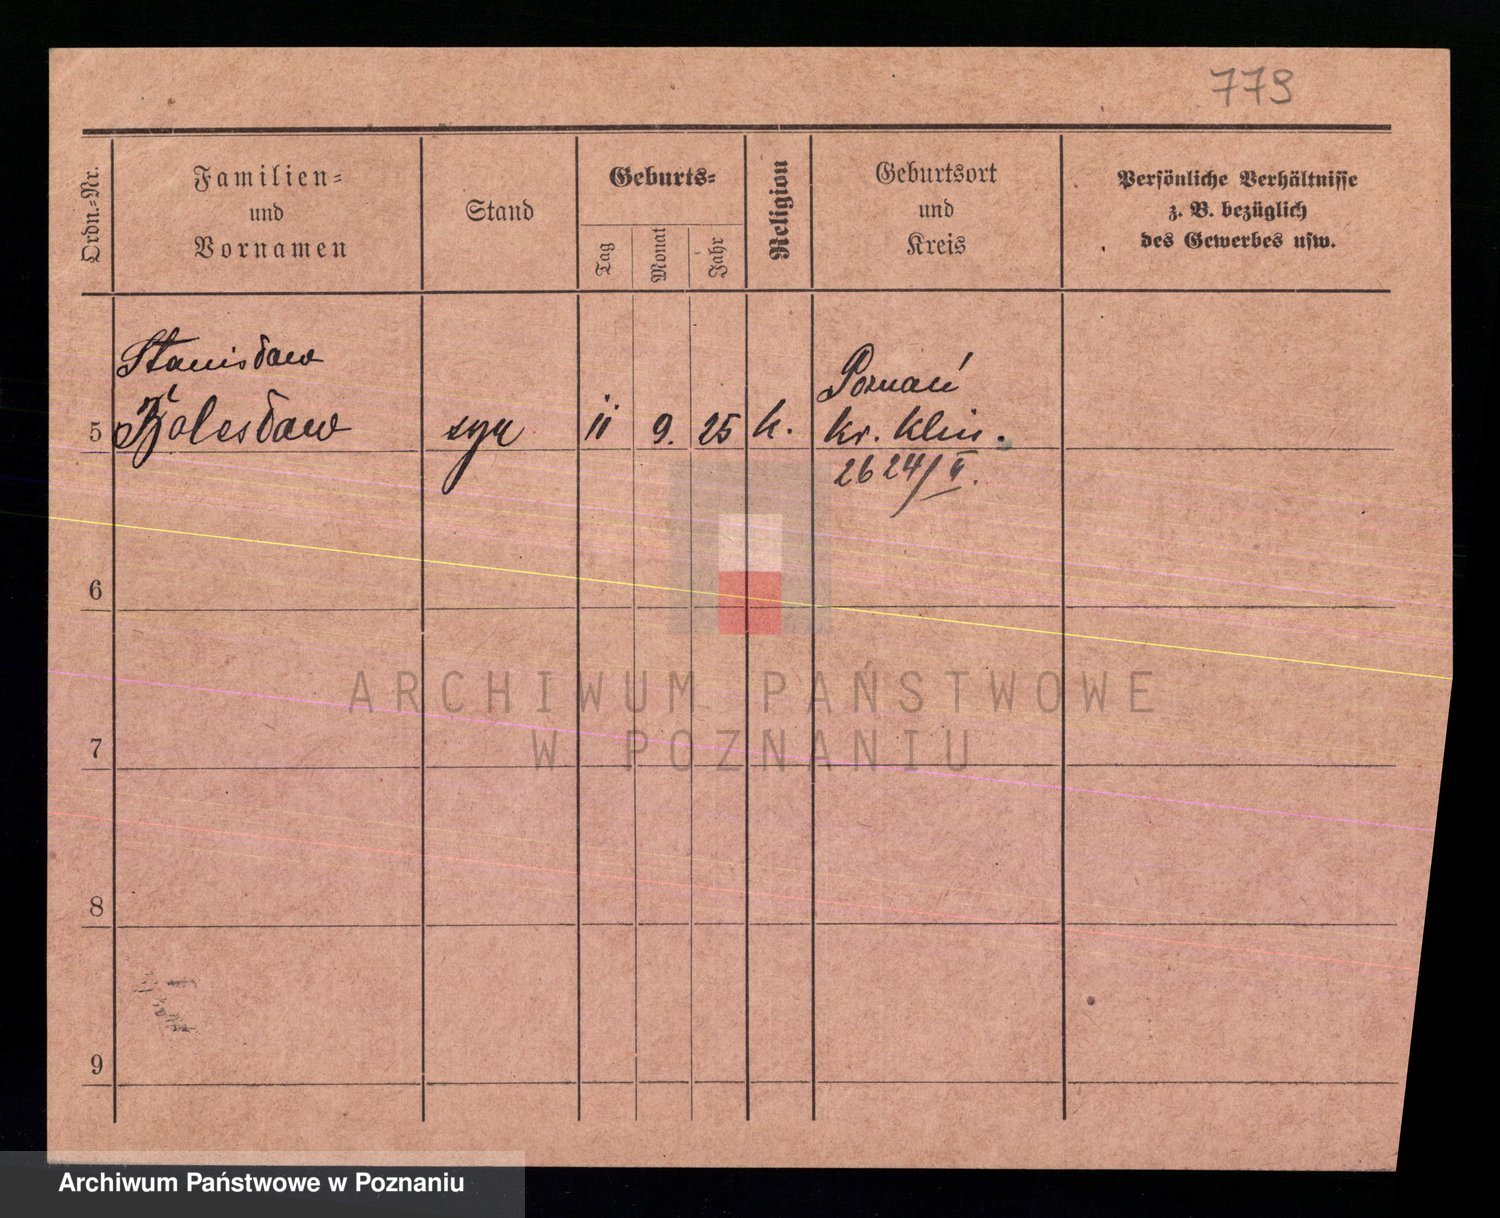 779
Ordn.-Nr.
Familien-
und
Vornamen
Stand
Geburts-
Tag
Monat
Jahr
Religion
Geburtsort
und
Kreis
Persönliche Verhältnisse
z. B. bezüglich
des Gewerbes usw.
Stanisław
5 Bolesław syn 11 9. 25 k.
Poznań
kr. Klin.
2624/II.
6
7
8
9
ARCHIWUM PAŃSTWOWE
W POZNANIU
Archiwum Państwowe w Poznaniu